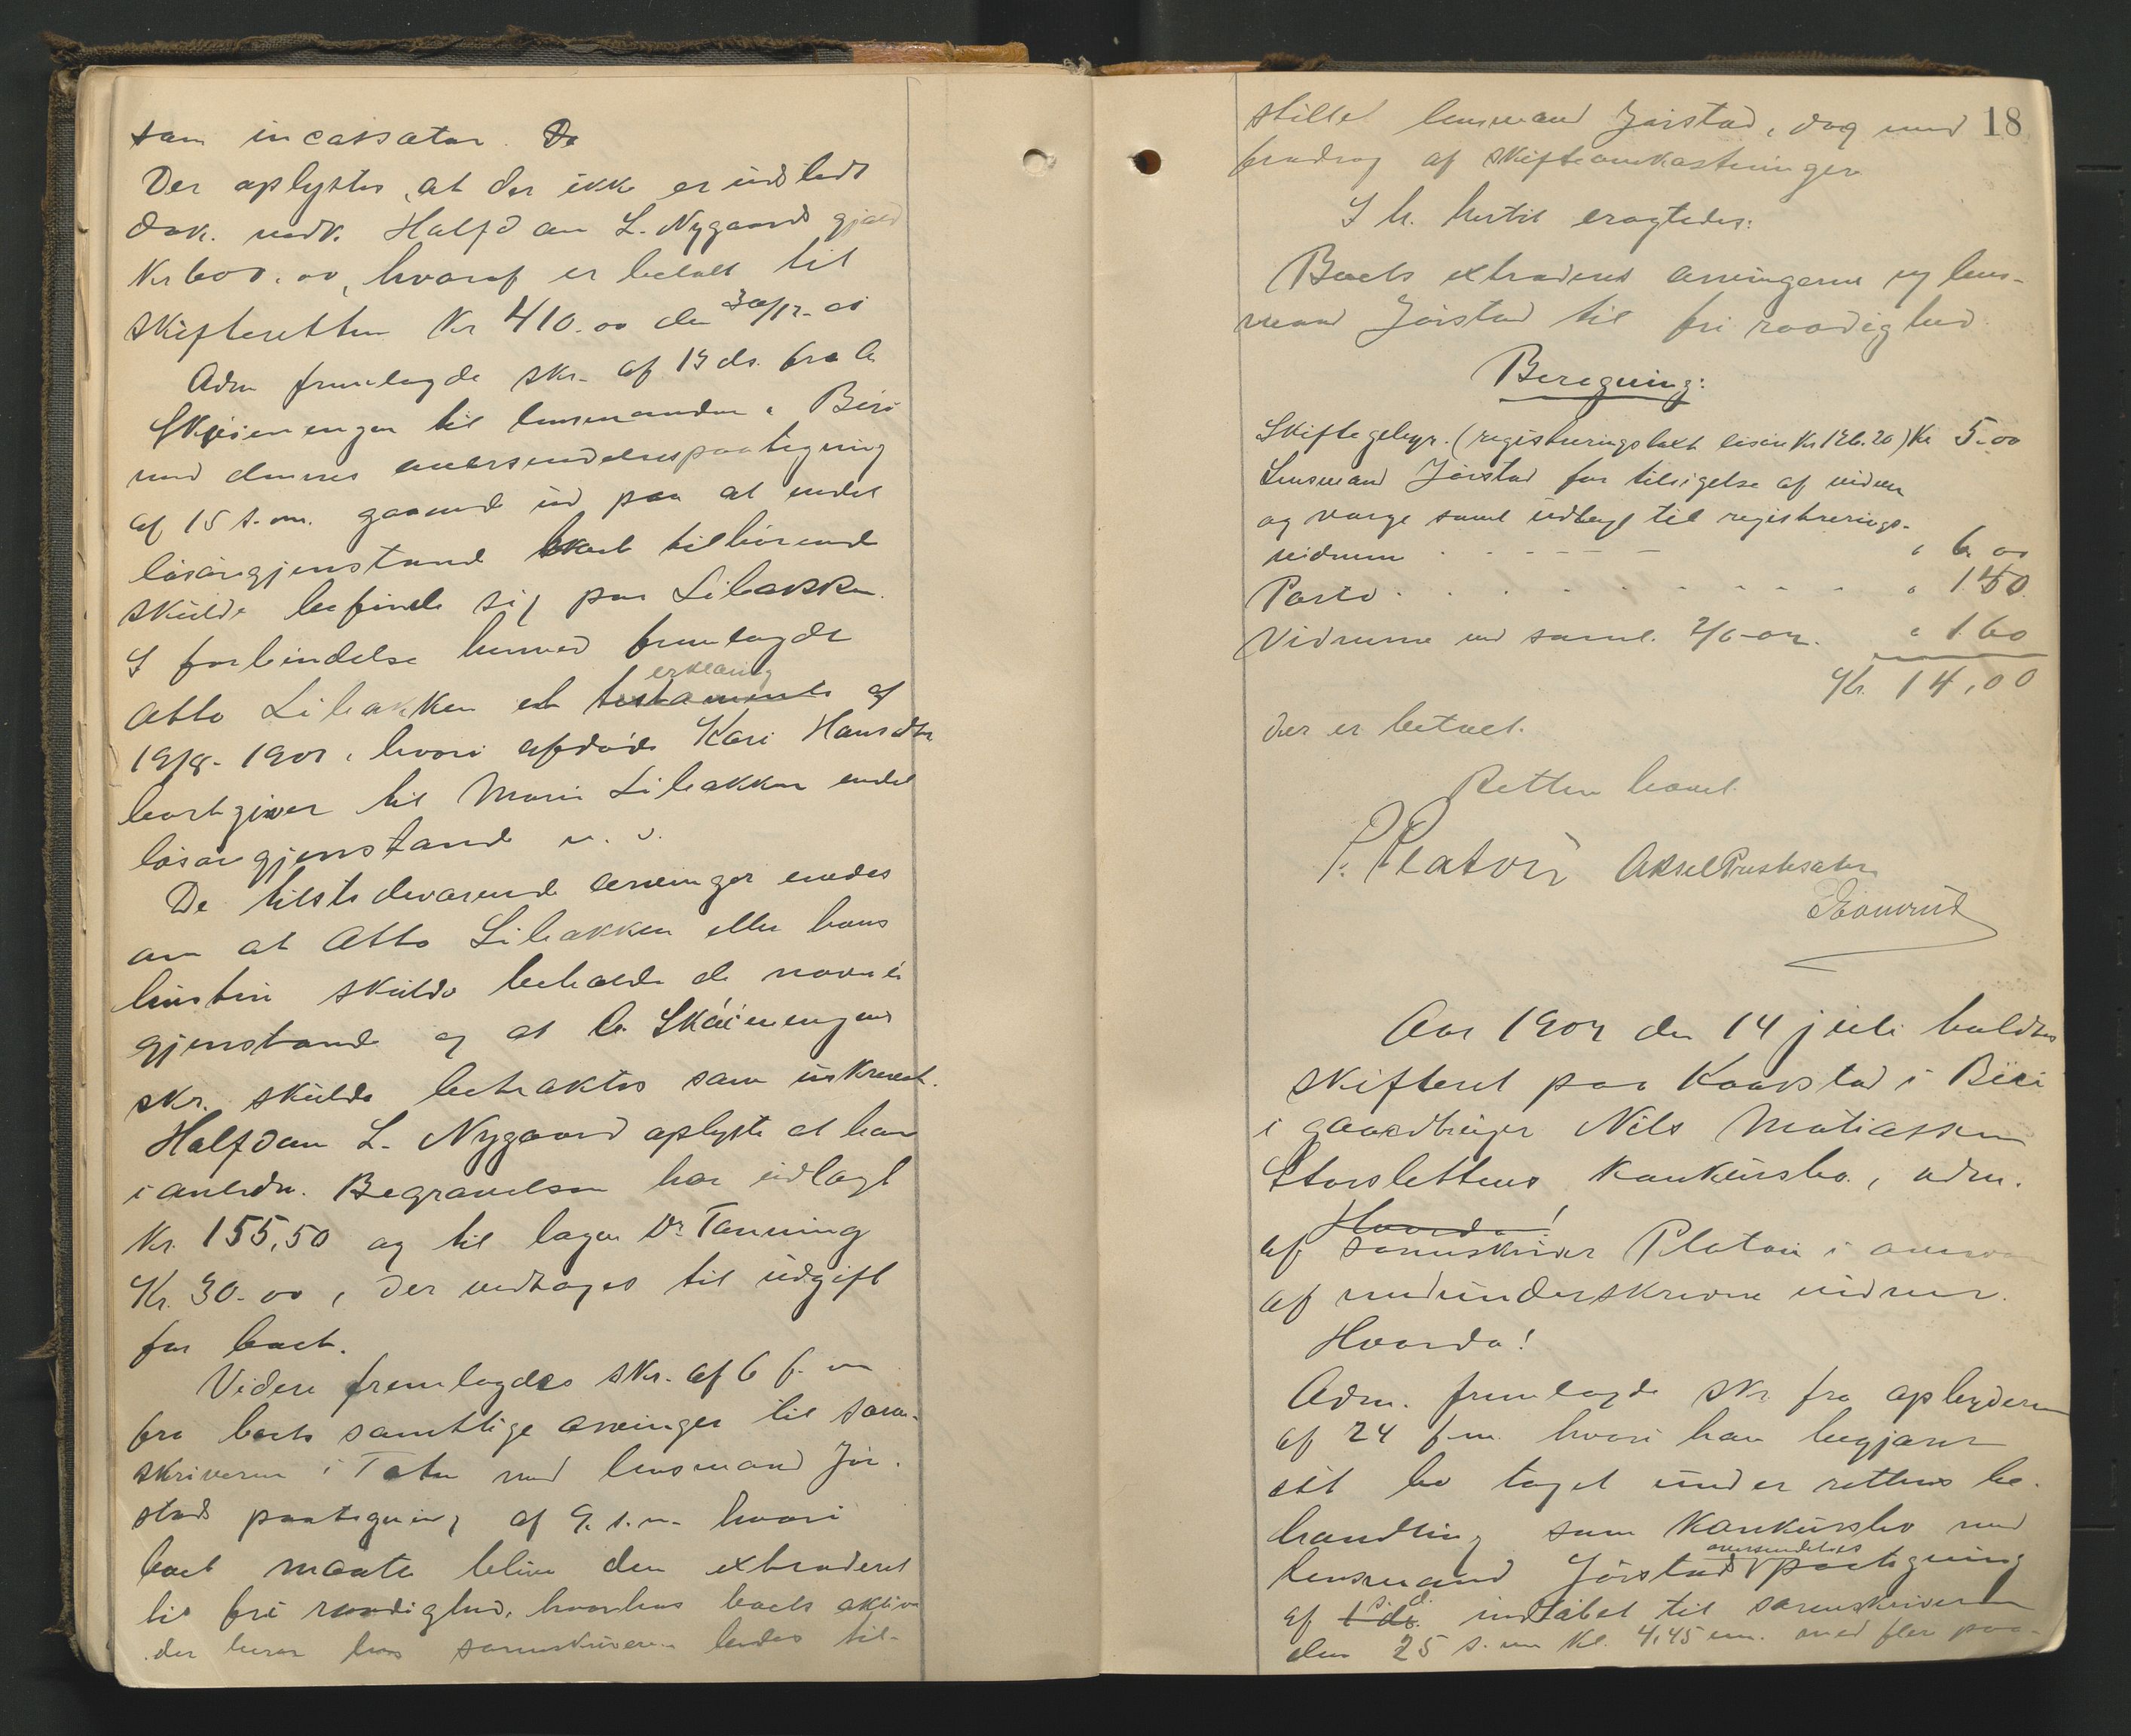 som incassator. De
Der oplystes, at der ikke er udstedt
dok. vedk. Halfdan L. Nygaards gjæld
Kr 600.00, hvoraf er betalt til
skifteretten Kr 410.00 den 30/12-01
Adm fremlagde skr. af 13 ds. fra A.
Skjeienengen til lensmanden i Biri
med dennes oversendelsespaategning
af 15 s.m. gaaende ud paa at endel
løsøregjenstande boet tilhørende
skulde befinde sig paa Libakken.
I forbindelse hermed fremlagde
Otto Libakken et testamente erklæring af
19/8-1901, hvori afdøde Kari Hansdtr
bortgiver til Marie Libakken endel
løsøregjenstande
De tilstedeværende arvinger enedes
om at Otto Libakken eller hans
hustru skulde beholde de nævnte
gjenstande og at A. Skøienengens
skr. skulde betraktes som uskrevet.
Halfdan L. Nygaard oplyste at han
i anledn. Begravelsen har udlagt
Kr. 155,50 og til læge Dr Tanning
Kr. 30.00, der vedtages til udgift
for boet.
Videre fremlagdes skr. af 6 f.m
fra boets samtlige arvinger til soren-
skriveren i Toten med lensmand Jør-
stads paategning af 9. s.m. hvori
boet maatte blive dem extraderet
til fri raadighed, hvorhos boets aktiva
der beror hos sorenskriveren bedes til-
18
stillet lensmand Jørstad, dog med
fradrag af skifteomkostninger
I h. hertil eragtedes:
Boets extraderes arvingerne v/ lens-
mand Jørstad til fri raadighed.
Beregning:
Skiftegebyr. (registreringstaxt Kr. 196.20) Kr 5.00
Lensmand Jørstad for tilsigelse af vidner
og værge samt udlagt til registrerings-
vidnerne - - - - - " 6.00
Porto - - - - - - - " 1.40
Vidnerne ved saml. 2/6-02. " 1.60
Kr. 14,00
der er betalt.
Retten hævet.
P. Platou Aksel Prestesæter
Aar 1902 den 14 juli holdtes
skifteret paa Kaarstad i Biri
i gaardbruger Nils Matiassen
Storslettens konkursbo, adm.
Hvorda!
af sorenskriver Platou i overvær
af medunderskrevne vidner.
Hvorda!
Adm. fremlagde skr. fra opbyderen
af 24 f.m. hvori han begjærer
sit bo taget under rettens be-
handling som konkursbo med
lensmand Jørstads oversendelses paategning
af 1 ds. s. d. indtabet til sorenskriveren
den 25 s.m kl. 4,45 em. med fler paa-